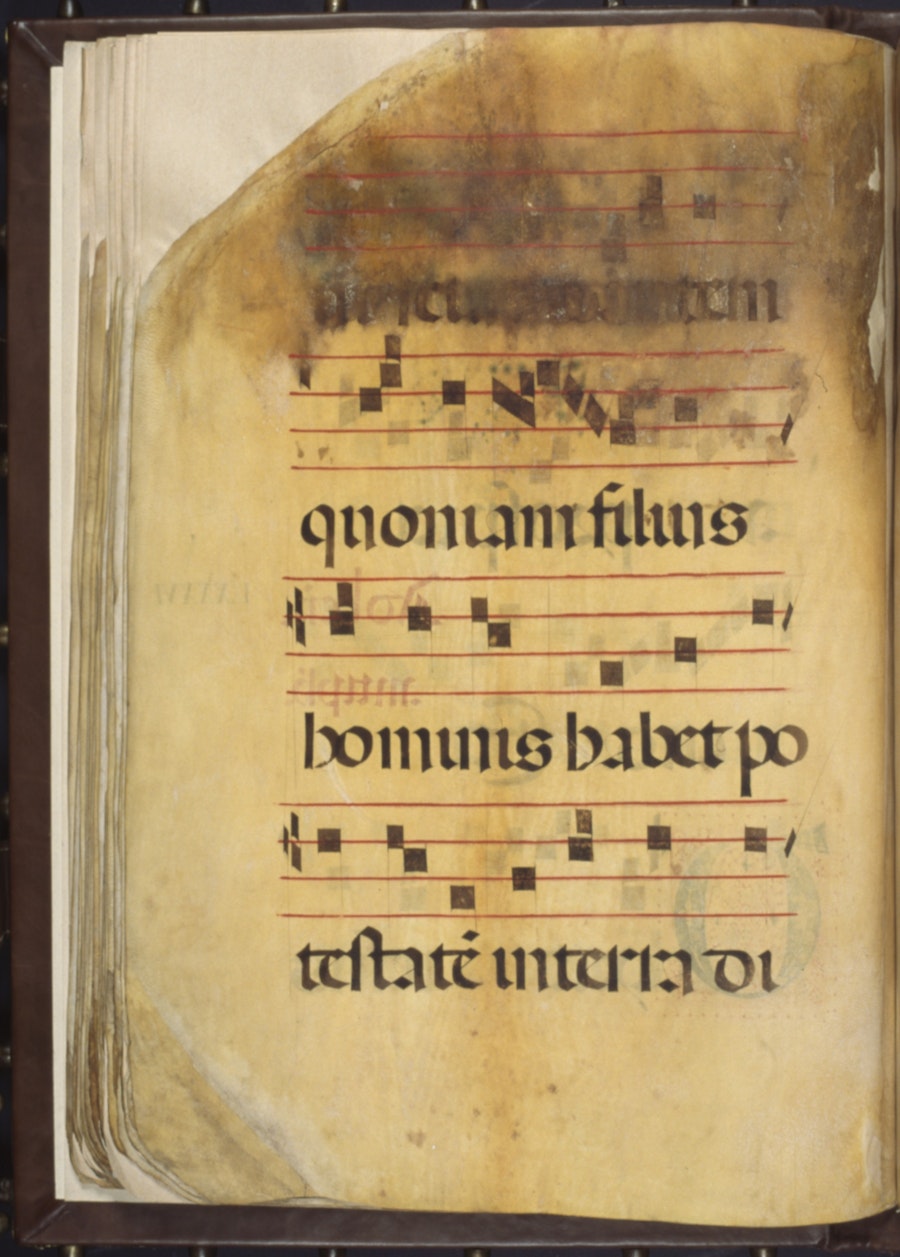 quoniam filius
hominis habet po
testatē in terra di